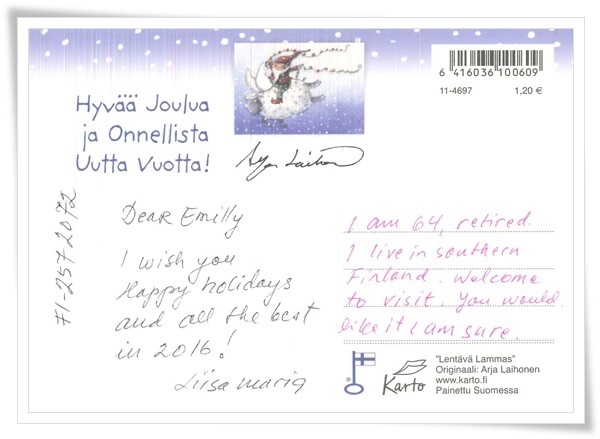 Hyvää Joulua
ja Onnellista
Uutta Vuotta!
6 416036 100609
11-4697 1,20 €
Arja Laihonen
FI-2572072
Dear Emilly
I wish you
Happy holidays
and all the best
in 2016!
Liisa Maria
I am 64, retired.
I live in southern
Finland. Welcome
to visit. You would
like it I am sure.
Karto
"Lentävä Lammas"
Originaali: Arja Laihonen
www.karto.fi
Painettu Suomessa